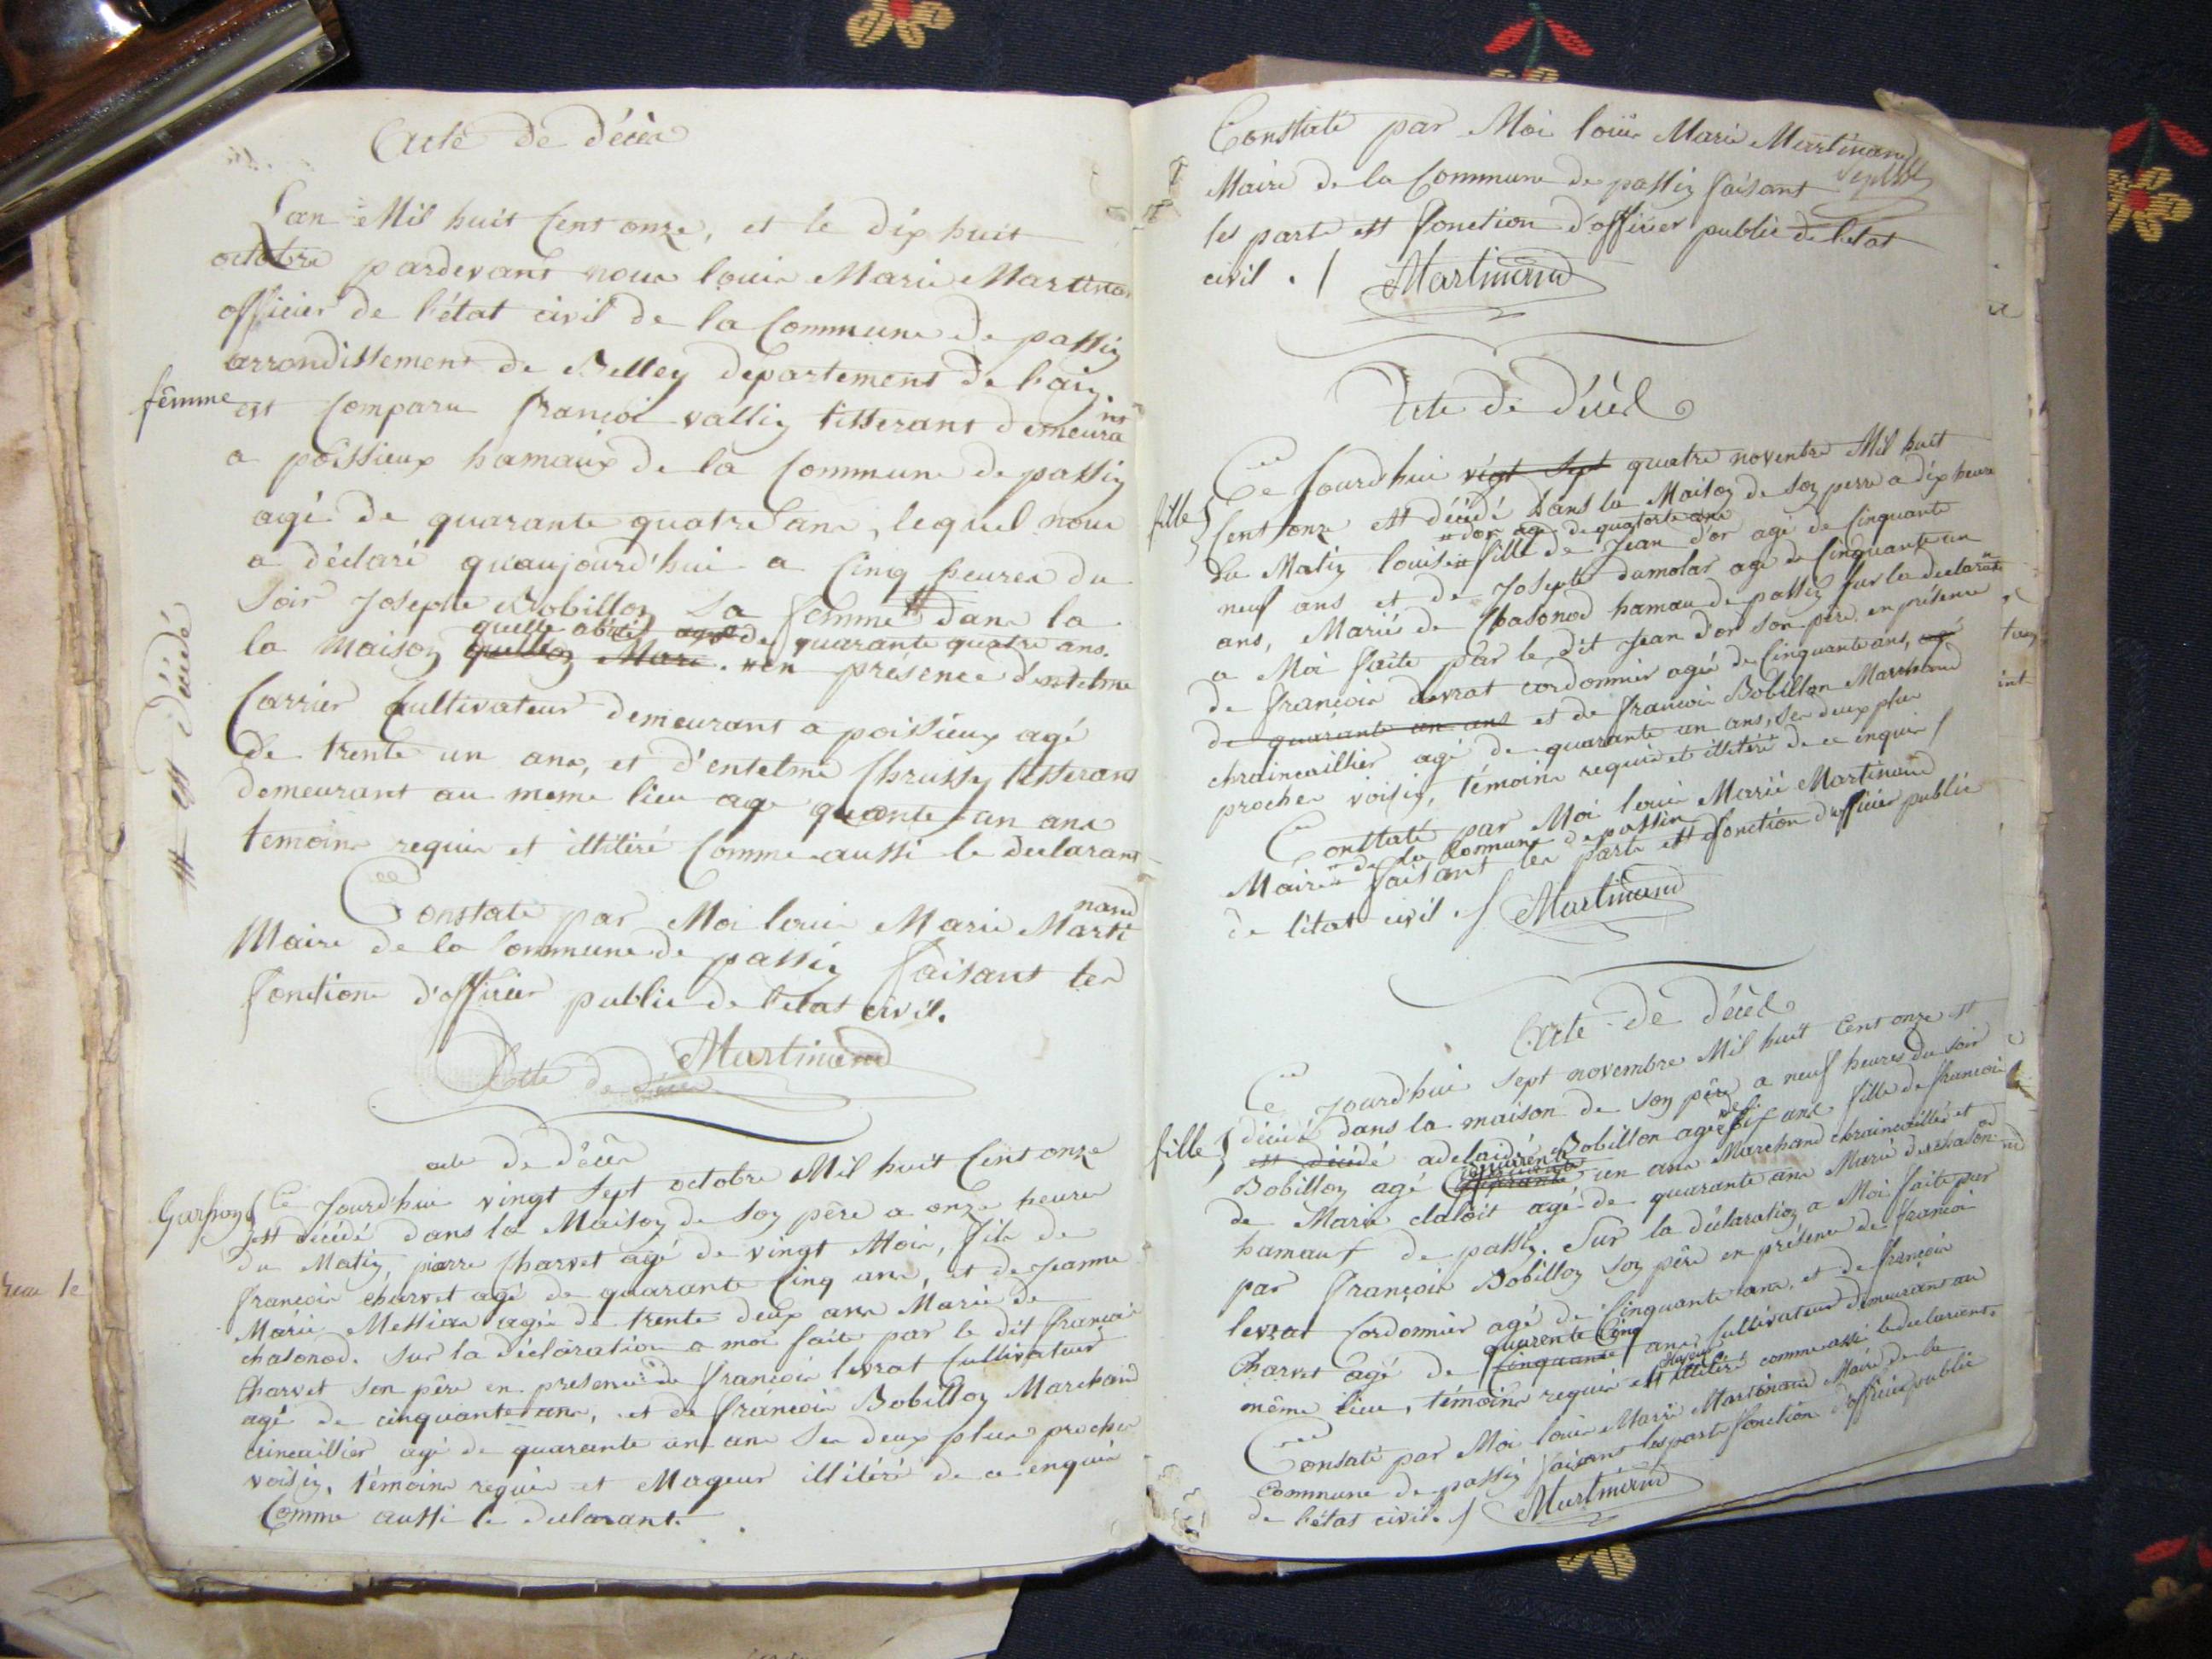 Acte de décès
Lan Mil huit Cent onze, et le dix huit
octobre pardevant nous louis Marie Martina
officier de l'état civil de la Commune de passin
arrondissement de Belley departement de l'ain
femme
est Comparu françoi vallin tisserant demeura nt
a poissieux hamaux de la Commune de passin
agé de quarante quatre ans, lequel nous
a déclaré quaujourd'hui a Cinq heures du
Soir Josephe Bobillon Sa femme # dans la
# est décédé
quelle abité agé de quarante quatre ans.
la maison quelle Mari. en présence d'entelme
Carrier Cultivateur demeurant a poissieux agé
de trente un ans, et d'entelme Chrussy tisserant
demeurant au meme lieu age quante un ans
temoins requis et illitéré Comme aussi le declarant
Constaté par Moi louis Marie Marti nand
Maire de la Commune de passin faisant les
fonctions d'officier public de l'etat civil.
Martinand
Acte de décès
acte de décès
Garson
Ce Jourd'hui vingt Sept octobre Mil huit Cent onze
est décédé dans la Maison de Son père a onze heures
du Matin, pierre Charvet agé de vingt Mois, fils de
françois charvet agé de quarante Cinq ans, et de Jeanne
Marie Messian agée de trente deux ans Marié de
chasonod. Sur la déclaration a moi faite par le dit françois
Charvet Son père en presence de françois levrat Cultivateur
agé de cinquante ans, et de françois Bobillon Marchand
cuincaillier agé de quarante un ans Ses deux plus proches
voisin, témoins requis et Mageur illitéré de ce enquis
Comme aussi le declarant.
Constaté par Moi louis Marie Martinand
Maire de la Commune de passin faisant
les parts est fonction d'officier public de l'etat
civil . / Martinand
Acte de décès
Ce Jourd'hui vigt Sept quatre novembre Mil huit
fille
Cent onze est décédé dans la Maison de Son perre a dix heure
# dor agé de quatorte ans
du Matin louise # fille de Jean d'or agé de Cinquante
neuf ans et de Josephe dumolar agé de Cinquante un
ans, Mariés de Chasonod hamau de passin Sur la declarati n
a Moi faite par le dit Jean d'or Son père, en présence
de françois levrat cordonnier agé de Cinquante ans, agé
de quarante un ans et de françois Bobillon Marchand
chraincaillier agé de quarante un ans, Ses deux plus
proches voisin, témoins requis et illitéré de ce enquis /
Constaté par Moi louis Marié Martinand
# de la Commune de passin
Maire # faisant les parts est fonction d'officier public
de l'état civil . / Martinand
Acte de décès
Ce Jourd'hui Sept novembre Mil huit Cent onze est
fille
décédé dans la maison de Son père a neuf heures du Soir
est décédé adelaide Bobillon agée de Six ans fille de françois
Bobillon agé quarente un ans Marchand chraincaillié et
de Marie clalôit agé de quarante ans Marié de chason od
hamaux de passin. Sur la déclaration a Moi faite par
par françois Bobillon Son père en présence de françoi
levrat Cordonnier agé de Cinquante ans, et de françois
quarente Cinq
Charvet agé de Cinquante ans Cultivateur demeurant au
même lieu, témoins requis et illitéré comme aussi le declarant.
Constaté par Moi louis Marie Martinand Maire de la
Commune de passin faisant les parts fonction d'officier public
de l'état civil. / Martinand